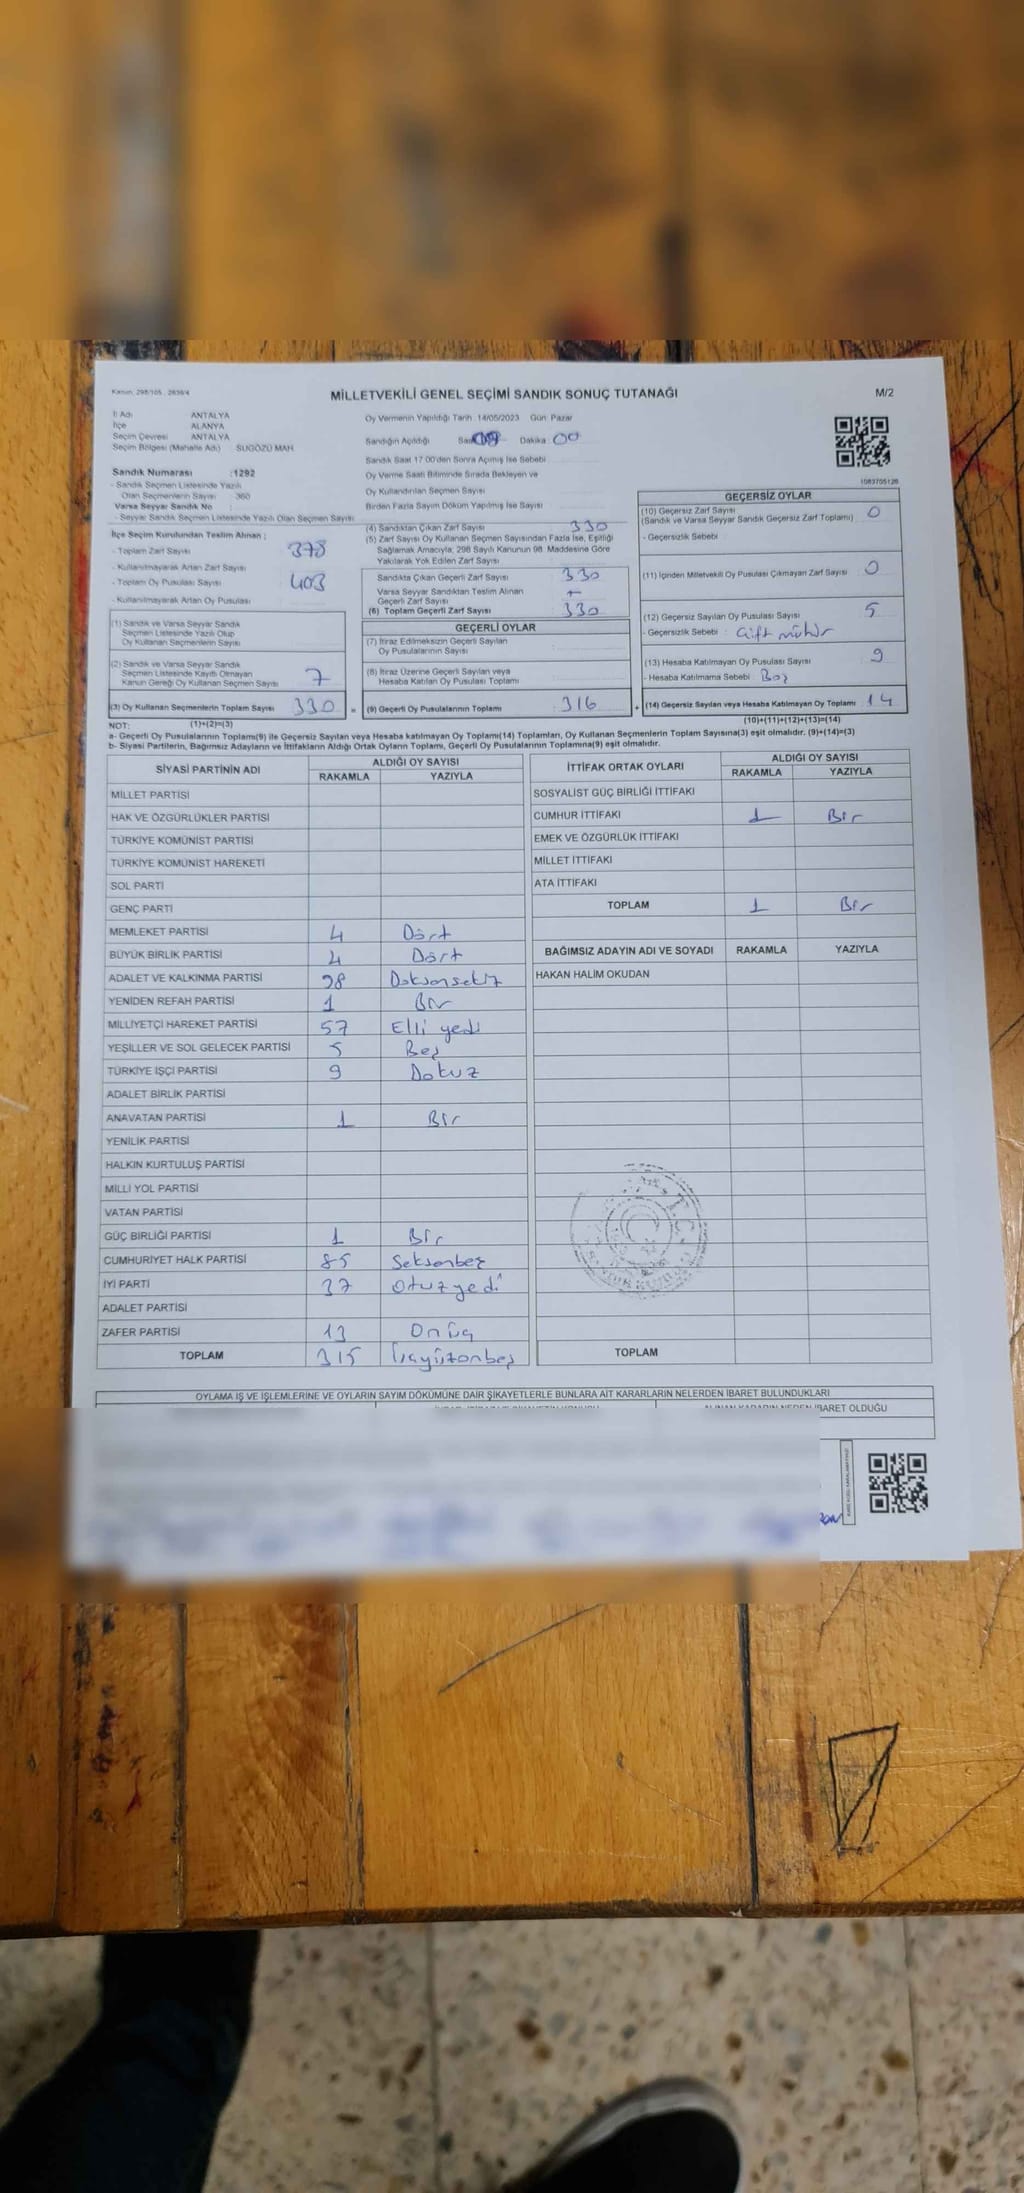 Kanun: 298/105 , 2839/4
MİLLETVEKİLİ GENEL SEÇİMİ SANDIK SONUÇ TUTANAĞI
M/2
İl Adı ANTALYA
İlçe ALANYA
Seçim Çevresi ANTALYA
Seçim Bölgesi (Mahalle Adı) SUGÖZÜ MAH.
Oy Vermenin Yapıldığı Tarih: 14/05/2023 Gün: Pazar
Sandığın Açıldığı Saat Dakika 00
Sandık Saat 17.00'den Sonra Açılmış İse Sebebi
Oy Verme Saati Bitiminde Sırada Bekleyen ve
Oy Kullandırılan Seçmen Sayısı
Birden Fazla Sayım Döküm Yapılmış İse Sayısı
Sandık Numarası :1292
- Sandık Seçmen Listesinde Yazılı
Olan Seçmenlerin Sayısı : 360
Varsa Seyyar Sandık No :
- Seyyar Sandık Seçmen Listesinde Yazılı Olan Seçmen Sayısı
İlçe Seçim Kurulundan Teslim Alınan ;
- Toplam Zarf Sayısı 378
- Kullanılmayarak Artan Zarf Sayısı
- Toplam Oy Pusulası Sayısı 403
- Kullanılmayarak Artan Oy Pusulası
(1) Sandık ve Varsa Seyyar Sandık
Seçmen Listesinde Yazılı Olup
Oy Kullanan Seçmenlerin Sayısı
(2) Sandık ve Varsa Seyyar Sandık
Seçmen Listesinde Kayıtlı Olmayan
Kanun Gereği Oy Kullanan Seçmen Sayısı 7
(3) Oy Kullanan Seçmenlerin Toplam Sayısı 330 =
(4) Sandıktan Çıkan Zarf Sayısı 330
(5) Zarf Sayısı Oy Kullanan Seçmen Sayısından Fazla İse, Eşitliği
Sağlamak Amacıyla, 298 Sayılı Kanunun 98. Maddesine Göre
Yakılarak Yok Edilen Zarf Sayısı
Sandıkta Çıkan Geçerli Zarf Sayısı 330
Varsa Seyyar Sandıktan Teslim Alınan
Geçerli Zarf Sayısı +
(6) Toplam Geçerli Zarf Sayısı 330
GEÇERLİ OYLAR
(7) İtiraz Edilmeksizin Geçerli Sayılan
Oy Pusulalarının Sayısı
(8) İtiraz Üzerine Geçerli Sayılan veya
Hesaba Katılan Oy Pusulası Toplamı
(9) Geçerli Oy Pusulalarının Toplamı 316 +
1083705126
GEÇERSİZ OYLAR
(10) Geçersiz Zarf Sayısı 0
(Sandık ve Varsa Seyyar Sandık Geçersiz Zarf Toplamı)
- Geçersizlik Sebebi
(11) İçinden Milletvekili Oy Pusulası Çıkmayan Zarf Sayısı 0
(12) Geçersiz Sayılan Oy Pusulası Sayısı 5
- Geçersizlik Sebebi : Çift mühür
(13) Hesaba Katılmayan Oy Pusulası Sayısı 9
- Hesaba Katılmama Sebebi : Boş
(14) Geçersiz Sayılan veya Hesaba Katılmayan Oy Toplamı 14
NOT: (1)+(2)=(3) (10)+(11)+(12)+(13)=(14)
a- Geçerli Oy Pusulalarının Toplamı(9) ile Geçersiz Sayılan veya Hesaba katılmayan Oy Toplamı(14) Toplamları, Oy Kullanan Seçmenlerin Toplam Sayısına(3) eşit olmalıdır. (9)+(14)=(3)
b- Siyasi Partilerin, Bağımsız Adayların ve İttifakların Aldığı Ortak Oyların Toplamı, Geçerli Oy Pusulalarının Toplamına(9) eşit olmalıdır.
SİYASİ PARTİNİN ADI ALDIĞI OY SAYISI
RAKAMLA YAZIYLA
MİLLET PARTİSİ
HAK VE ÖZGÜRLÜKLER PARTİSİ
TÜRKİYE KOMÜNİST PARTİSİ
TÜRKİYE KOMÜNİST HAREKETİ
SOL PARTİ
GENÇ PARTİ
MEMLEKET PARTİSİ 4 Dört
BÜYÜK BİRLİK PARTİSİ 4 Dört
ADALET VE KALKINMA PARTİSİ 98 Doksansekiz
YENİDEN REFAH PARTİSİ 1 Bir
MİLLİYETÇİ HAREKET PARTİSİ 57 Elli yedi
YEŞİLLER VE SOL GELECEK PARTİSİ 5 Beş
TÜRKİYE İŞÇİ PARTİSİ 9 Dokuz
ADALET BİRLİK PARTİSİ
ANAVATAN PARTİSİ 1 Bir
YENİLİK PARTİSİ
HALKIN KURTULUŞ PARTİSİ
MİLLİ YOL PARTİSİ
VATAN PARTİSİ
GÜÇ BİRLİĞİ PARTİSİ 1 Bir
CUMHURİYET HALK PARTİSİ 85 Seksenbeş
İYİ PARTİ 37 Otuzyedi
ADALET PARTİSİ
ZAFER PARTİSİ 13 Onüç
TOPLAM 315 Üçyüzonbeş
İTTİFAK ORTAK OYLARI ALDIĞI OY SAYISI
RAKAMLA YAZIYLA
SOSYALİST GÜÇ BİRLİĞİ İTTİFAKI
CUMHUR İTTİFAKI 1 Bir
EMEK VE ÖZGÜRLÜK İTTİFAKI
MİLLET İTTİFAKI
ATA İTTİFAKI
TOPLAM 1 Bir
BAĞIMSIZ ADAYIN ADI VE SOYADI RAKAMLA YAZIYLA
HAKAN HALİM OKUDAN
TOPLAM
OYLAMA İŞ VE İŞLEMLERİNE VE OYLARIN SAYIM DÖKÜMÜNE DAİR ŞİKAYETLERLE BUNLARA AİT KARARLARIN NELERDEN İBARET BULUNDUKLARI
ALINAN KARARIN NEDEN İBARET OLDUĞU